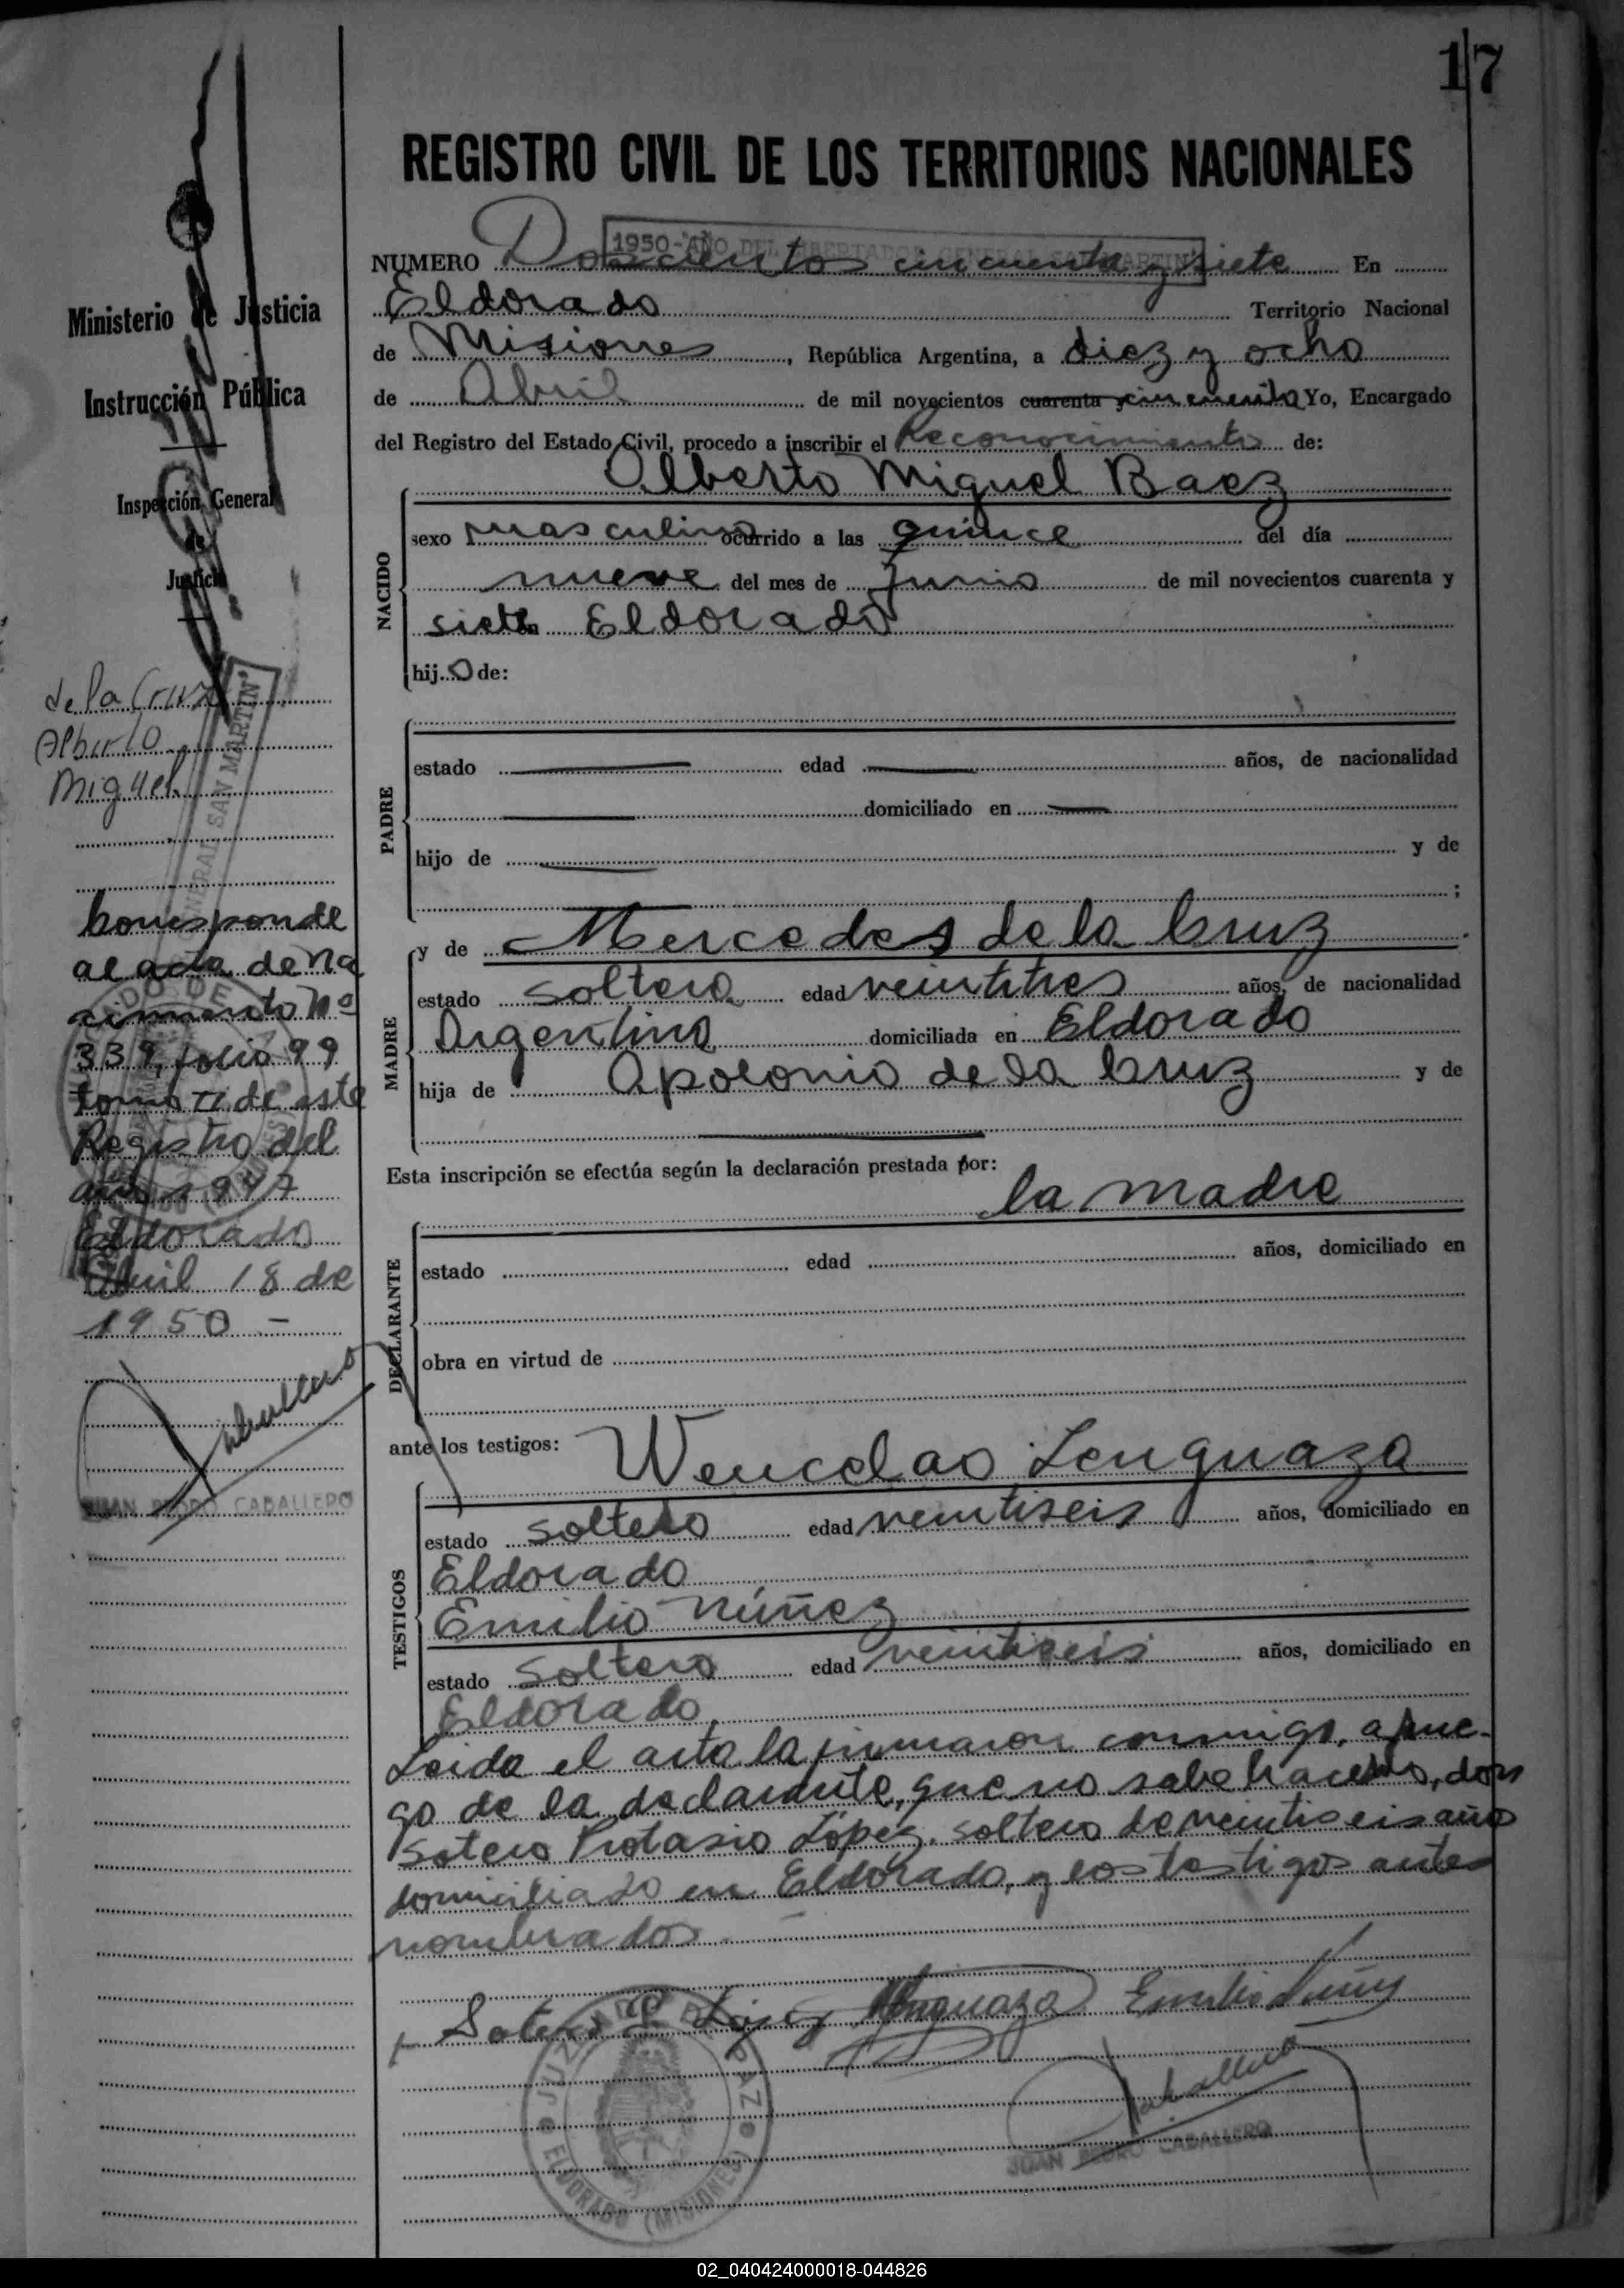 17
REGISTRO CIVIL DE LOS TERRITORIOS NACIONALES
1950-AÑO DEL LIBERTADOR GENERAL SAN MARTIN
NUMERO Doscientos cincuenta y siete En
Eldorado Territorio Nacional
de Misiones, República Argentina, a diez y ocho
de Abril de mil novecientos cuarenta y cincuenta Yo, Encargado
del Registro del Estado Civil, procedo a inscribir el Reconocimiento de:
Alberto Miguel Baez
NACIDO
sexo masculino ocurrido a las quince del día
nueve del mes de Junio de mil novecientos cuarenta y
siete Eldorado
hijo de:
PADRE
estado edad años, de nacionalidad
domiciliado en
hijo de y de
;
MADRE
y de Mercedes de la Cruz
estado soltera edad veintitres años, de nacionalidad
Argentina domiciliada en Eldorado
hija de Apolonia de la Cruz y de
Esta inscripción se efectúa según la declaración prestada por:
la madre
DECLARANTE
estado edad años, domiciliado en
obra en virtud de
ante los testigos: Wencelao Lenguaza
TESTIGOS
estado soltero edad veintiseis años, domiciliado en
Eldorado
Emilio Núñez
estado soltero edad veintiseis años, domiciliado en
Eldorado
Leida el acta la firmaron conmigo, a rue-
go de la declarante, que no sabe hacerlo, don
Sotero Protasio López, soltero de veintiseis años
domiciliado en Eldorado, y los testigos antes
nombrados.
Sotero P. López Lenguaza Emilio Núñez
JUZGADO DE PAZ
ELDORADO (MISIONES)
Caballero
JUAN PEDRO CABALLERO
Ministerio de Justicia
Instrucción Pública
Inspección General
de
Justicia
de la Cruz
Alberto
Miguel
GENERAL SAN MARTIN
Corresponde
al acta de na
cimiento Nº
339, folio 99
tomo II de este
Registro del
año 1947
Eldorado
Abril 18 de
1950 -
Caballero
JUAN PEDRO CABALLERO
02_040424000018-044826